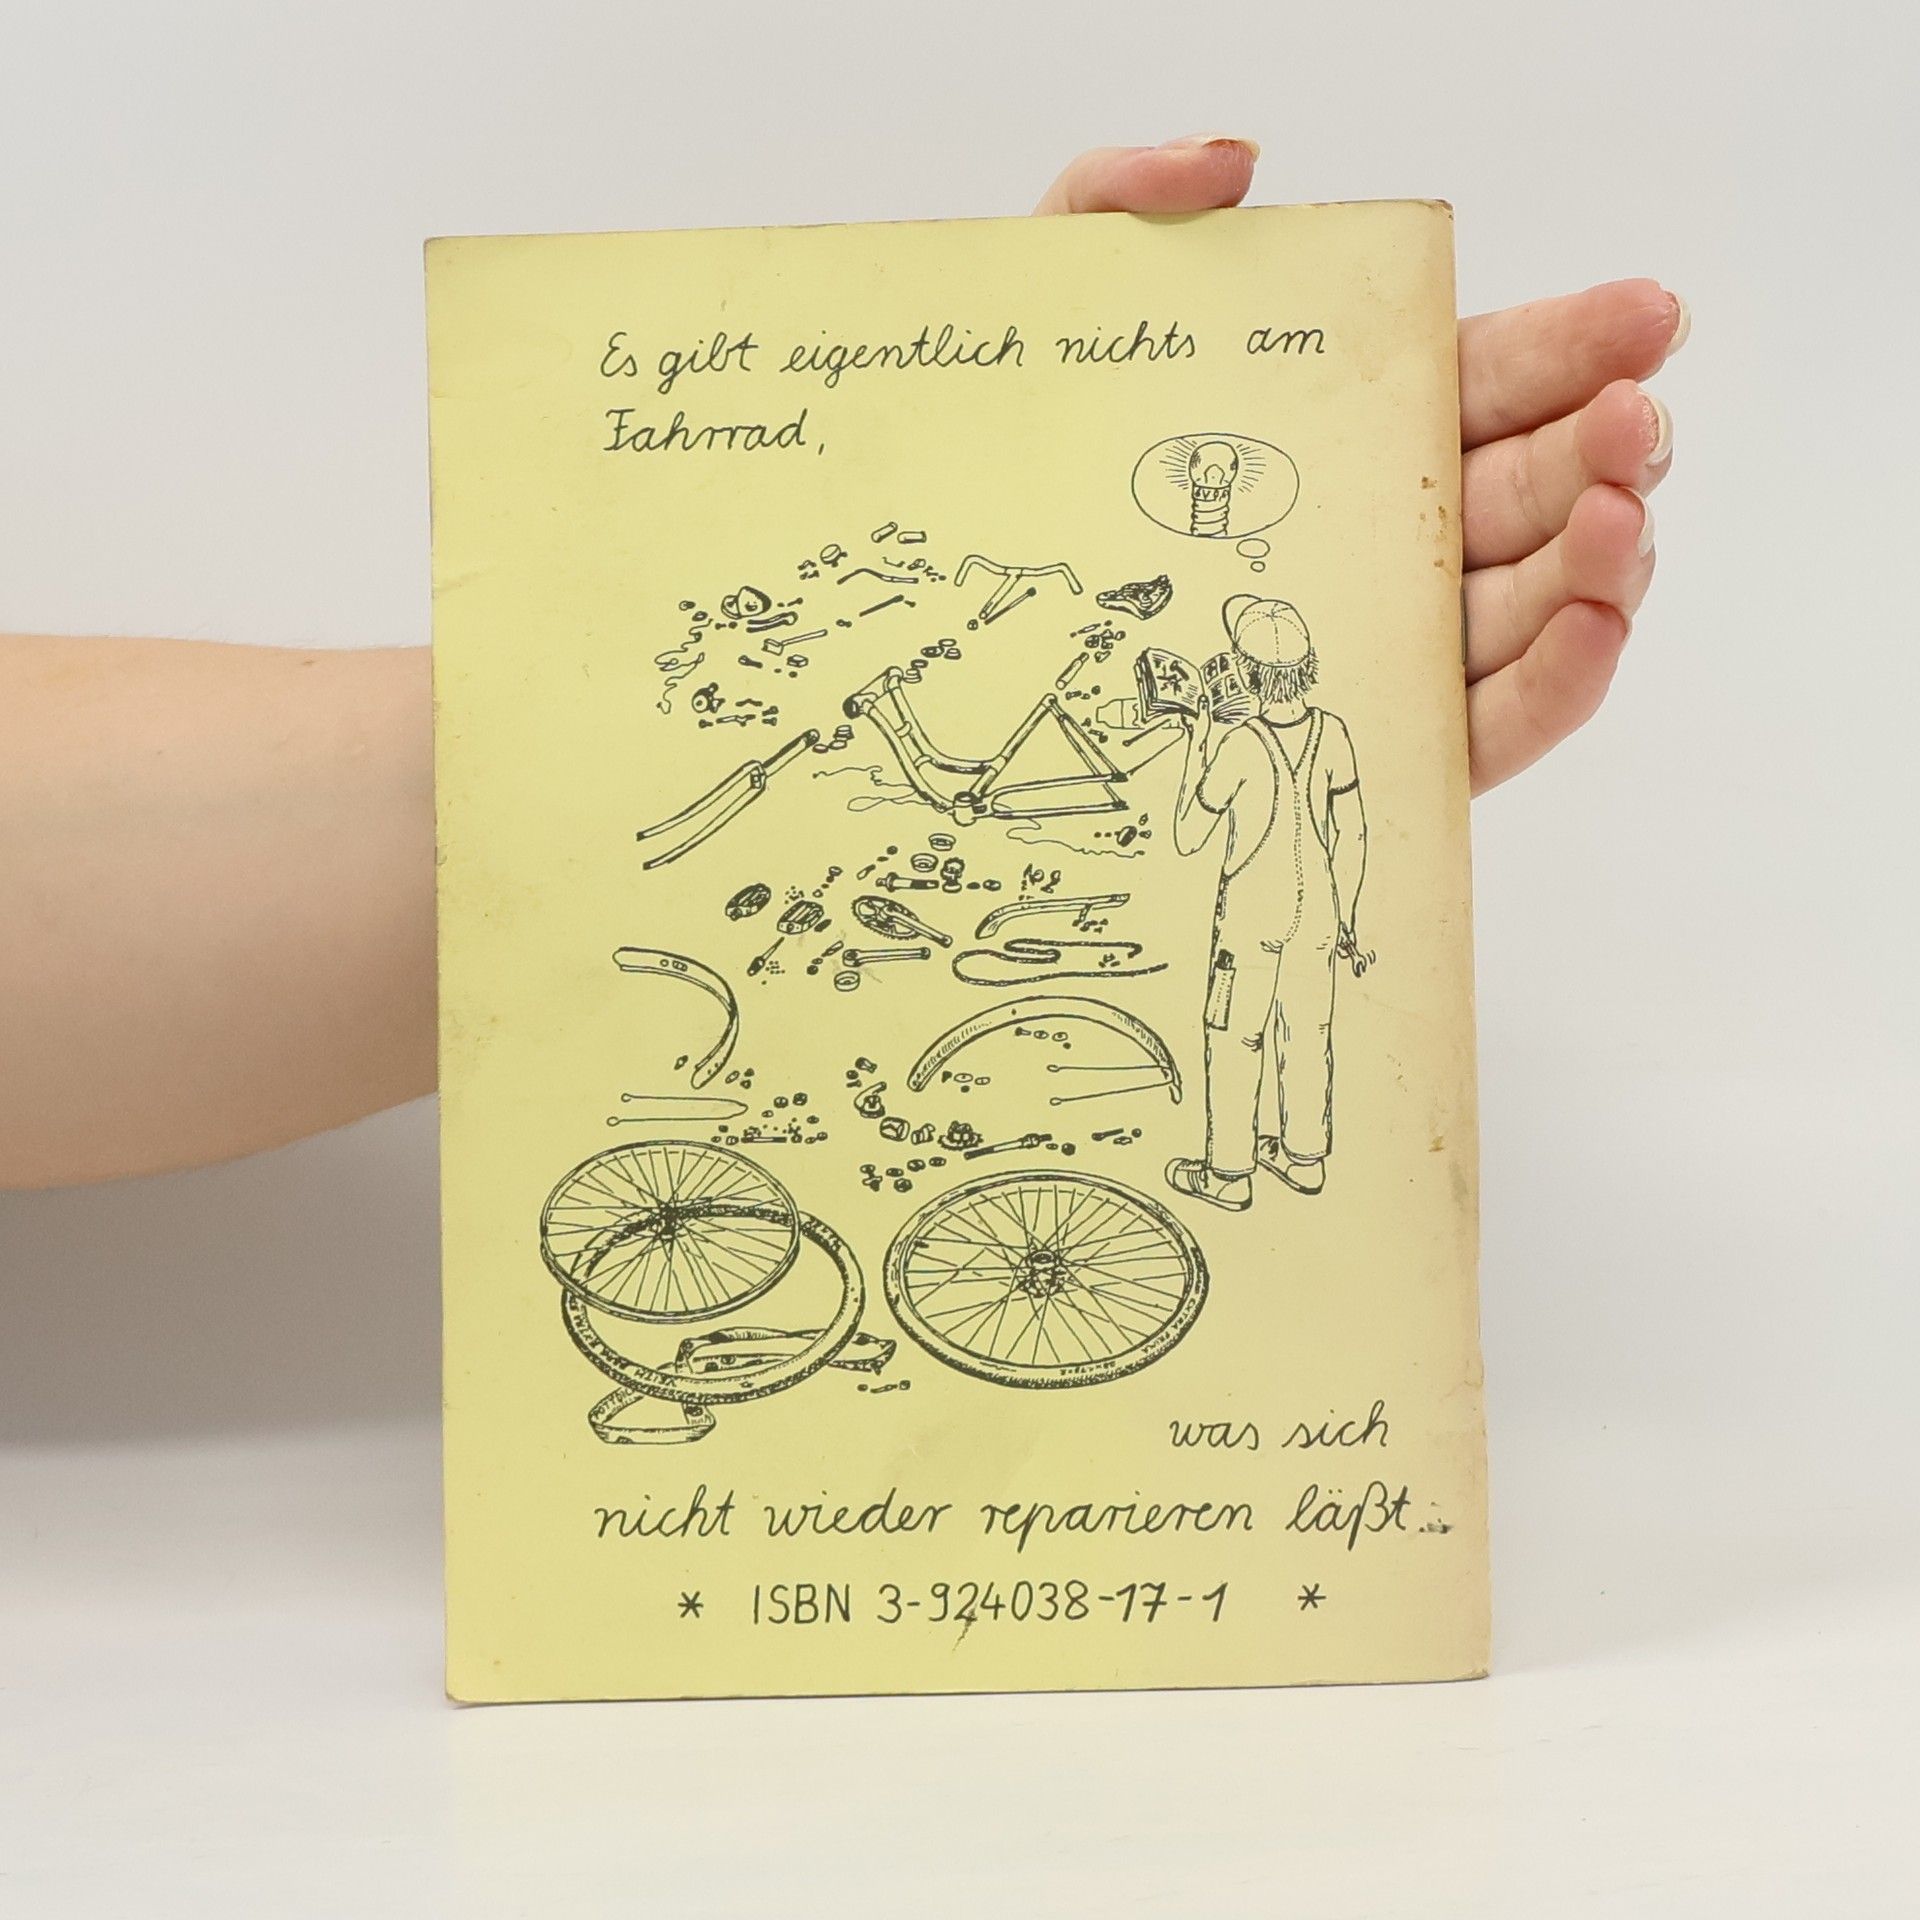 Es gibt eigentlich nichts am
Fahrrad,
was sich
nicht wieder reparieren läßt...
* ISBN 3-924038-17-1 *